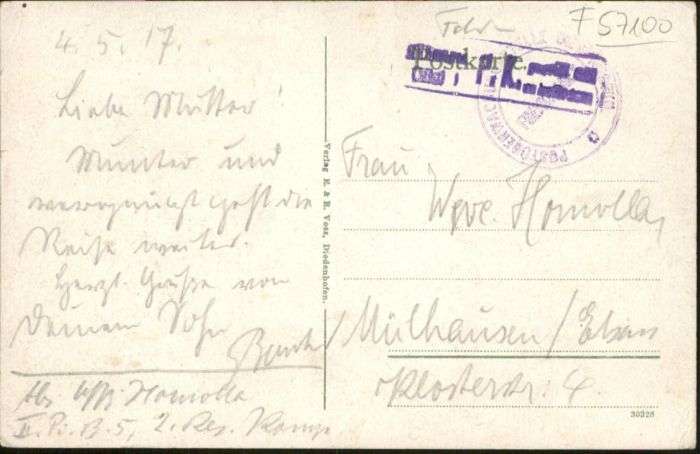 4. 5. 17.
Liebe Mutter!
Munter und
vergnügt geht die
Reise weiter.
Herzl. Grüße von
Deinem Sohn
Abs. Uffz. Homolla
II. Pi. B. 5, 2. Res. Komp.
Verlag E. & R. Voss, Diedenhofen.
Feld-
F 57100
Postkarte.
P.K.
POSTÜBERWACH
Frau
Wwe. Homolla,
Mülhausen/Elsass
Klosterstr: 4.
30328